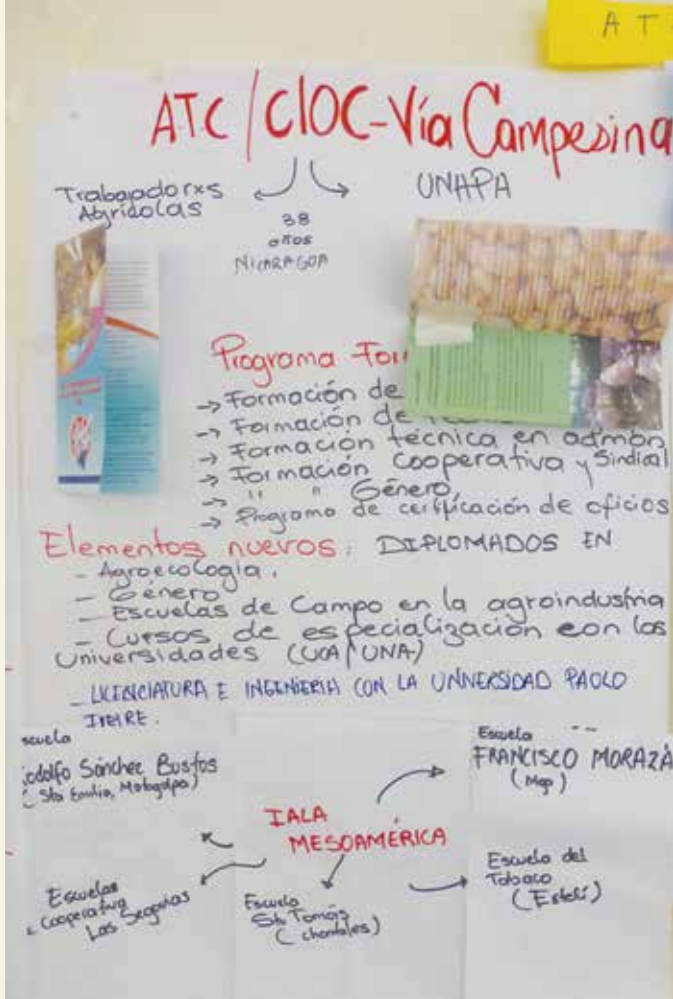 A T
ATC/CIOC-Vía Campesina
Trabajadorxs
Agrícolas
UNAPA
38
años
NICARAGUA
Programa For
→ Formación de
→ Formación de
→ Formación técnica en admón
→ Formación cooperativa y Sindical
→ " " Género
→ Programa de certificación de oficios
Elementos nuevos: DIPLOMADOS EN
- Agroecología.
- Género
- Escuelas de Campo en la agroindustria
- Cursos de especialización con los
Universidades (UCA/UNA)
- LICENCIATURA E INGENIERIA CON LA UNIVERSIDAD PAOLO
FREIRE.
scuela
odolfo Sánchez Bustos
(Sta Emilia, Matagalpa)
Escuela
FRANCISCO MORAZÁ
(Mgp)
IALA
MESOAMÉRICA
Escuelas
Cooperativa
Las Segovias
Escuela
Sto Tomás
(chontales)
Escuela del
Tabaco
(Estelí)